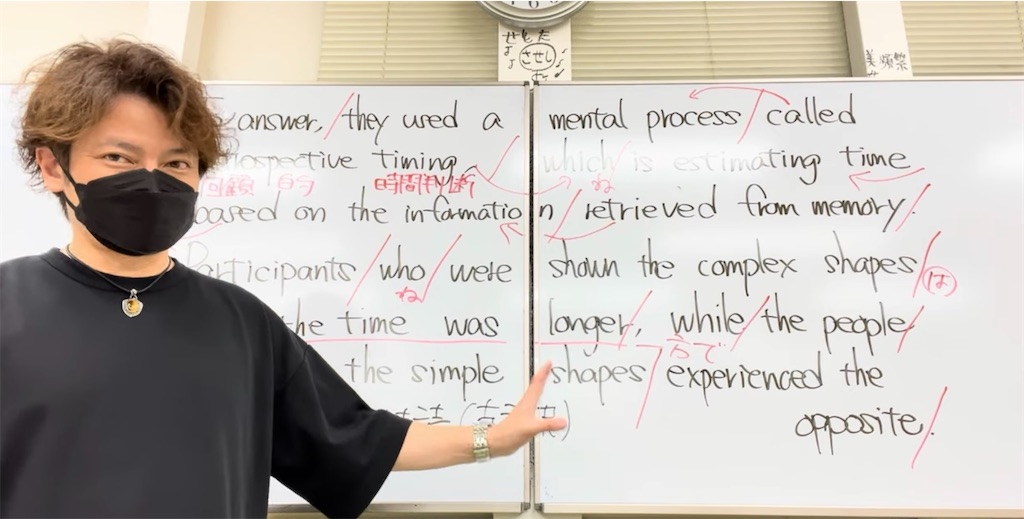 answer, they used a mental process called
rospective timing, which is estimating time
回顧 的 時間判断 ね
based on the information retrieved from memory.
Participants who were shown the complex shapes
ね は
the time was longer, while the people
方で
the simple shapes experienced the
opposite.
させし
美 頻繁